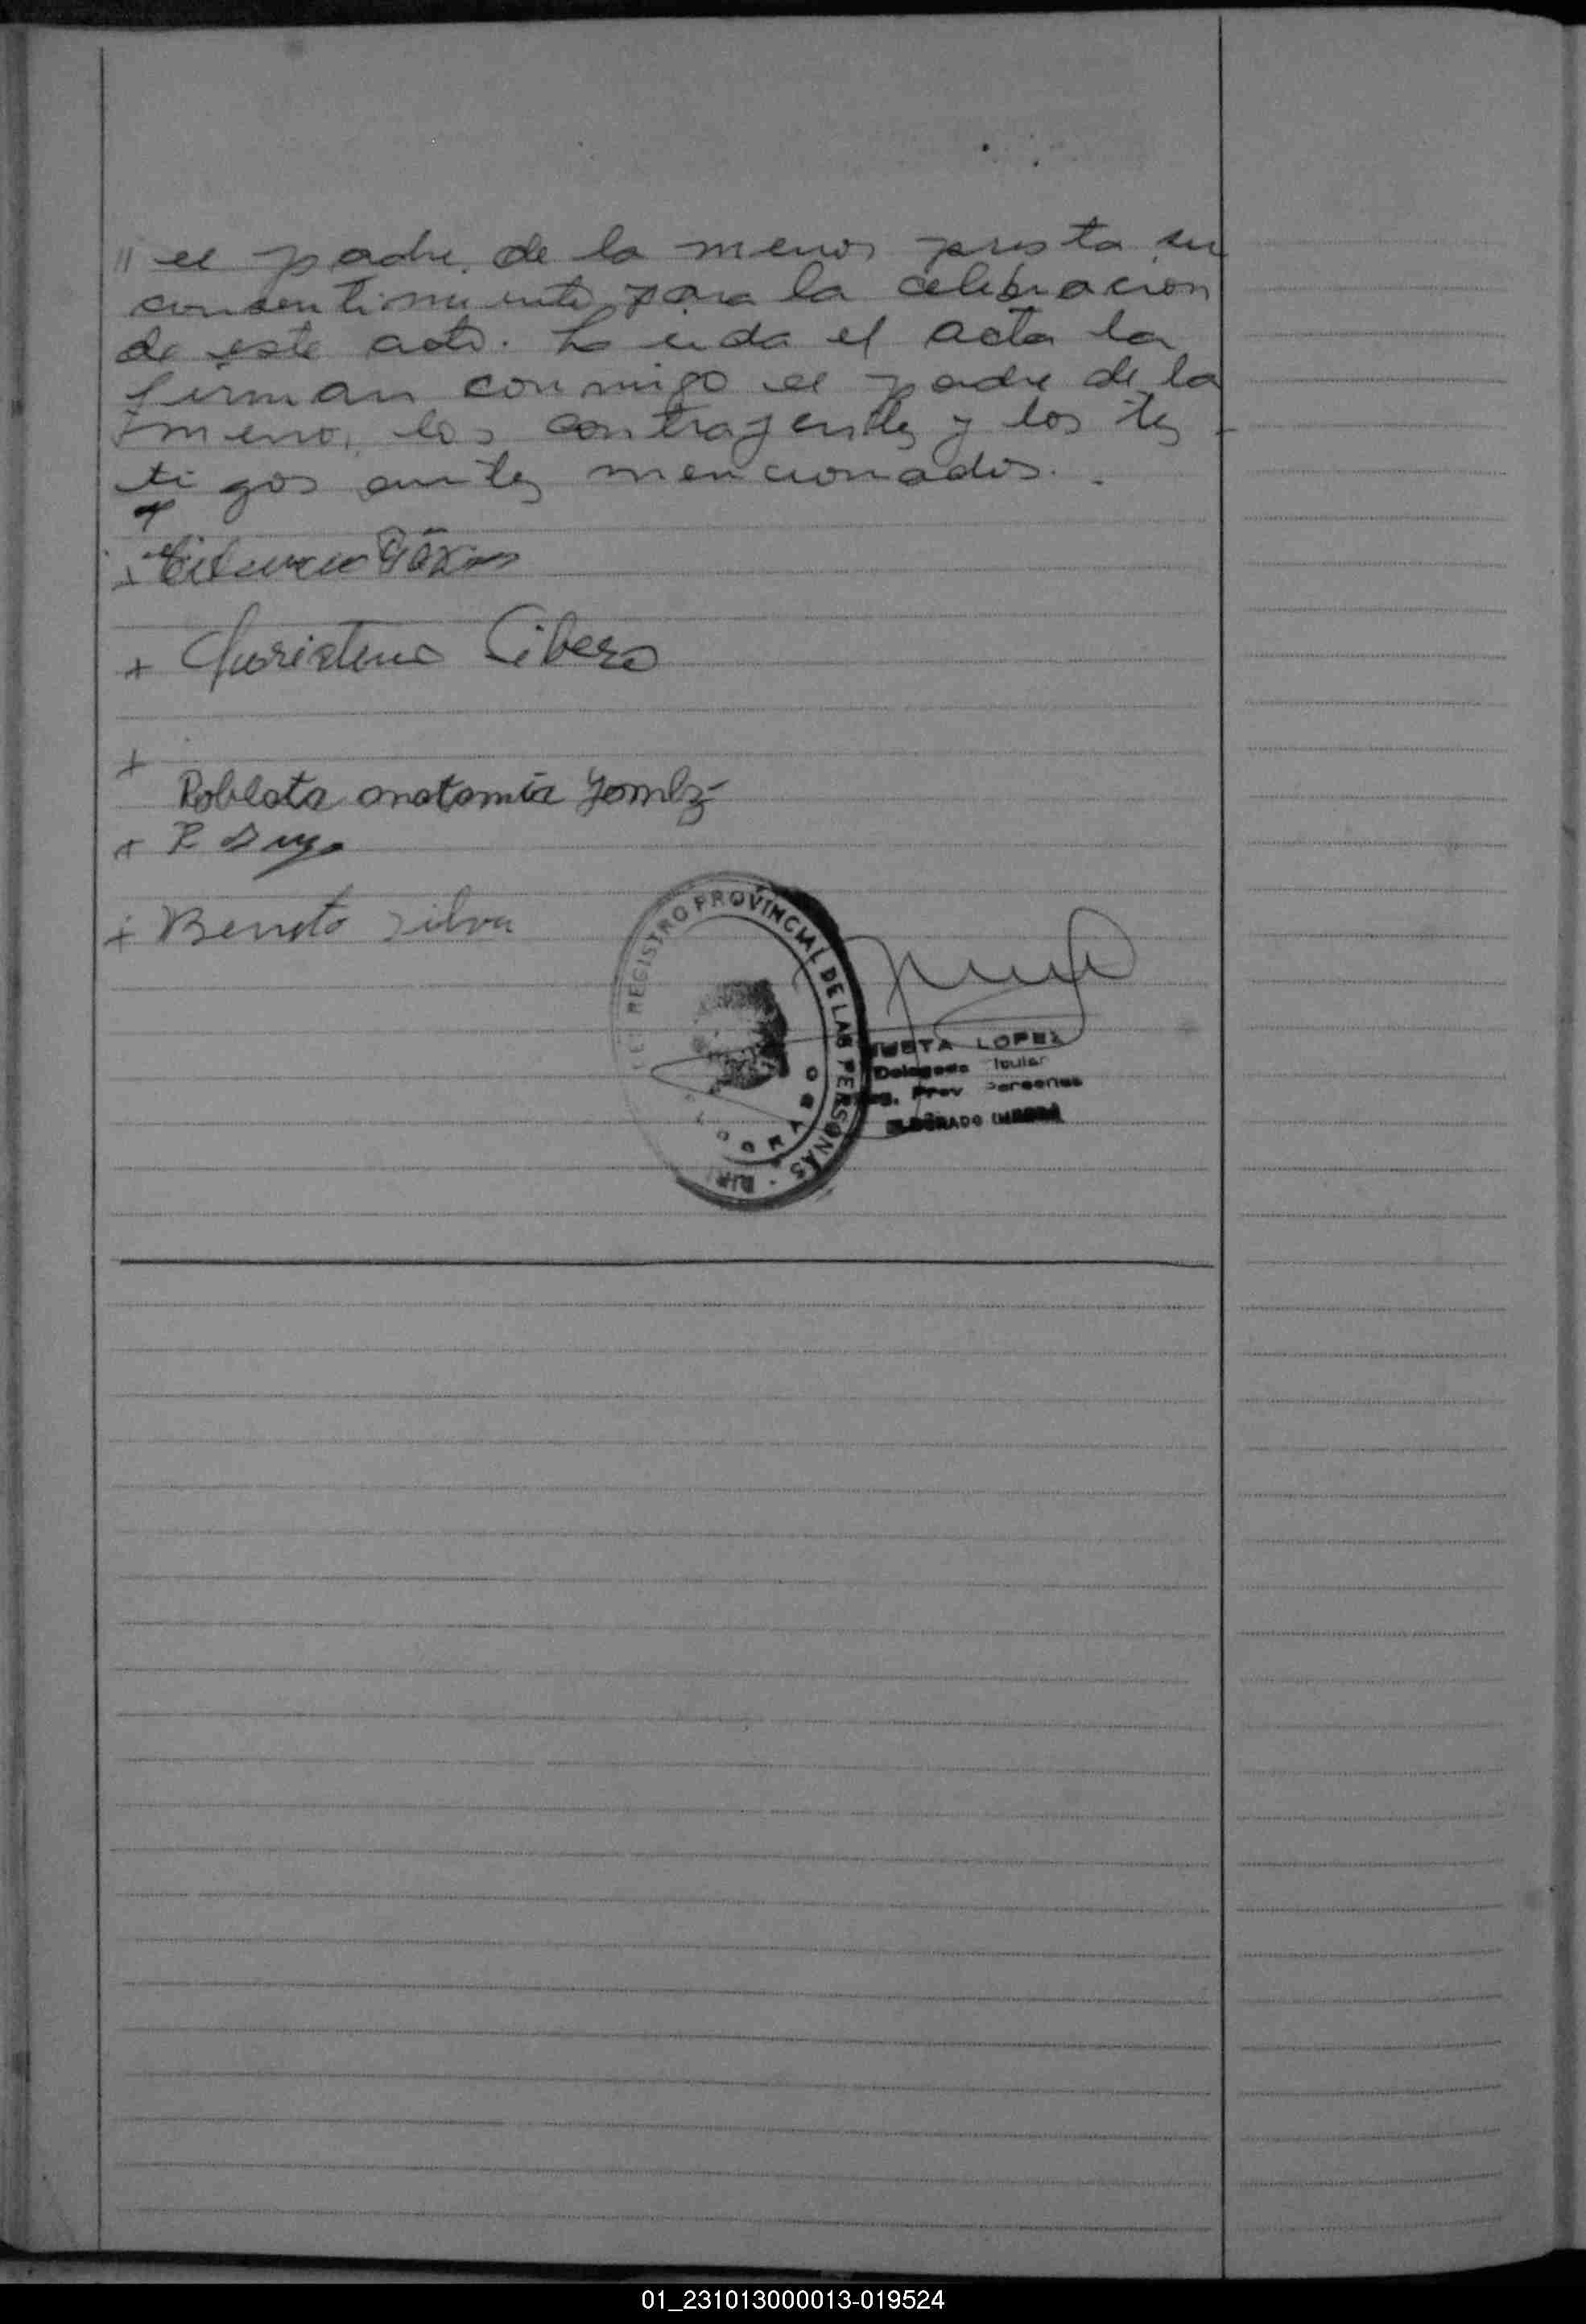 " el padre de la menor presta su
consentimiento para la celebracion
de este acto. Leida el acta la
firman conmigo el padre de la
menor, los contrayentes y los tes
tigos antes mencionados.
Libero
Robleta anatamia Gomez
Benito Silva
REGISTRO PROVINCIAL DE LAS PERSONAS
ELDORADO
LOPEZ
Delegada Titular
Prov Personas
ELDORADO
01_231013000013-019524